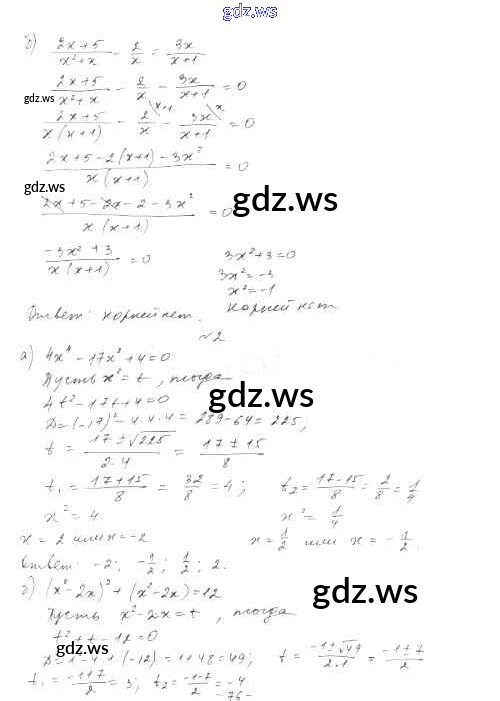 gdz.ws
б) (2x+5)/(x²+x) - 2/x = 3x/(x+1)
(2x+5)/(x²+x) - 2/x - 3x/(x+1) = 0
gdz.ws
(2x+5)/(x(x+1)) - 2/x^(x+1) - 3x/(x+1)^x = 0
(2x+5-2(x+1)-3x²)/(x(x+1)) = 0
gdz.ws
gdz.ws
(2x+5-2x-2-3x²)/(x(x+1)) = 0
(-3x²+3)/(x(x+1)) = 0 3x²+3=0
3x²=-3
x²=-1
корней нет
Ответ: корней нет.
№2
а) 4x⁴-17x²+4=0
Пусть x²=t, тогда
gdz.ws
4t²-17t+4=0
D=(-17)²-4·4·4=289-64=225,
t = (17±√225)/(2·4) = (17±15)/8
t₁ = (17+15)/8 = 32/8 = 4; t₂ = (17-15)/8 = 2/8 = 1/4
x²=4 x² = 1/4
gdz.ws
gdz.ws
x=2 или x=-2 x = 1/2 или x = -1/2.
Ответ: -2; -1/2; 1/2; 2.
б) (x²-2x)²+(x²-2x)=12
gdz.ws
Пусть x²-2x=t, тогда
t²+t-12=0
gdz.ws
D=1-4·1·(-12)=1+48=49; t = (-1±√49)/(2·1) = (-1±7)/2
t₁ = (-1+7)/2 = 3; t₂ = (-1-7)/2 = -4
-76-